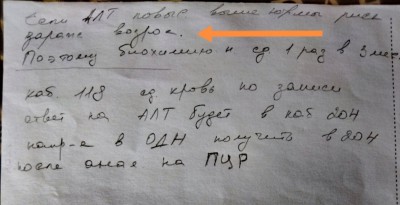 Если АЛТ повыс выше нормы риск
зараж возрос.
Поэтому биохимию н сд 1 раз в 3 мес
каб 118 сд. кровь по записи
ответ на АЛТ будет в каб 204
напр-е в ОДН получить в 204
после анал на ПЦР